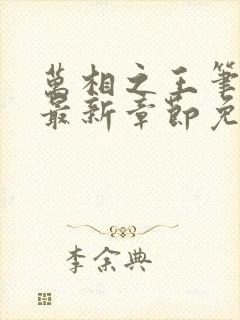 萬相之王筆
最新章節免
李余典